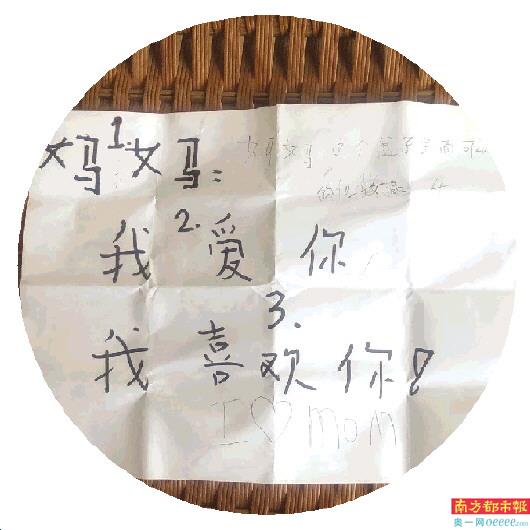 妈1妈：
妈妈
2.
我爱你
3.
我喜欢你！
I ♡ mom
南方都市报
奥一网oeeee.com